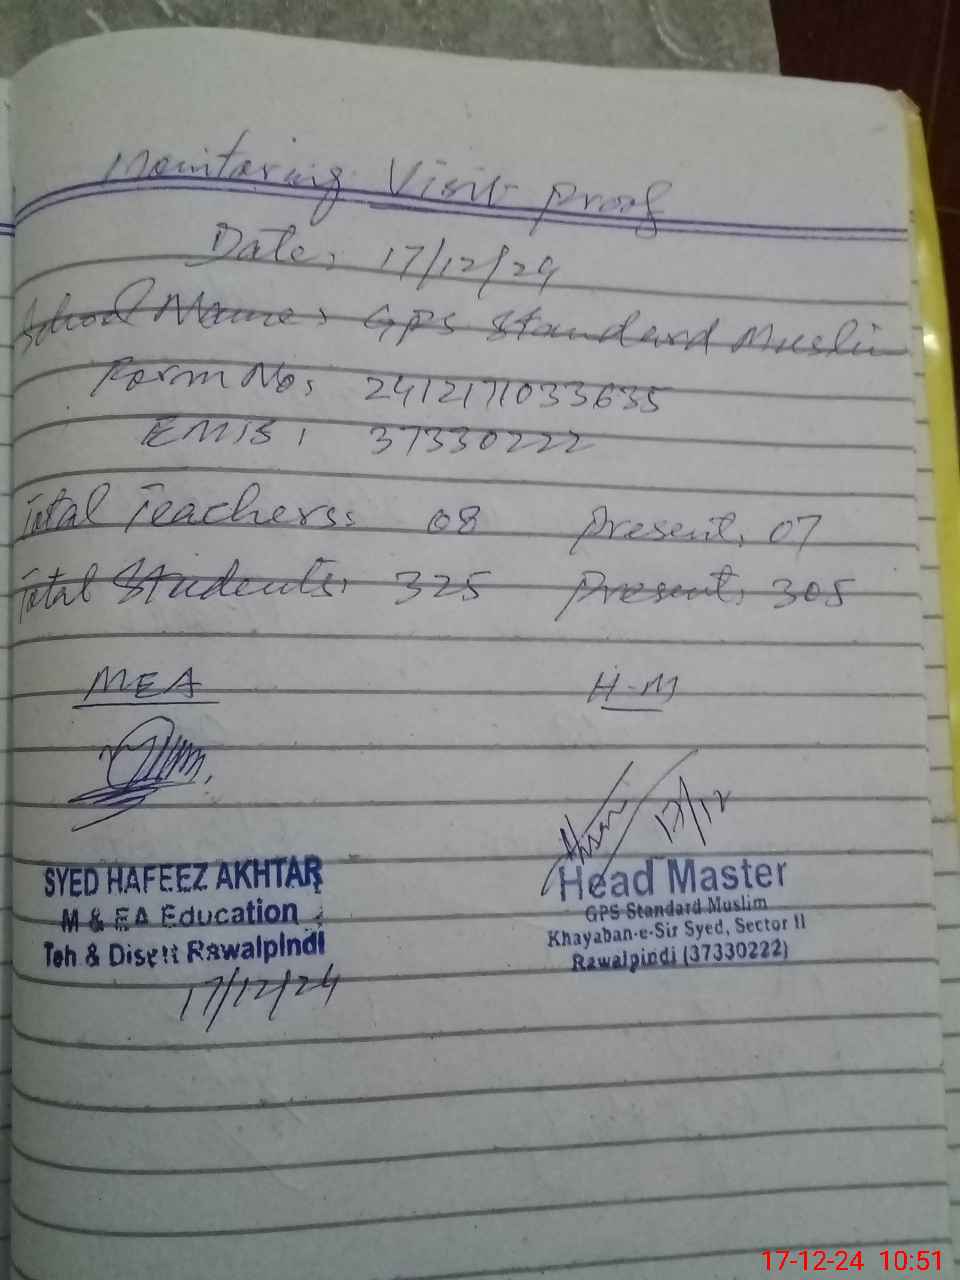 Monitoring Visit Proof
Date: 17/12/24
School Name: GPS Standard Muslim
Form No: 2412171033635
EMIS: 37330222
Total Teachers: 08 Present: 07
Total Students: 325 Present: 305
MEA H-M
17/12
SYED HAFEEZ AKHTAR
M & EA Education
Teh & Disett Rawalpindi
17/12/24
Head Master
GPS Standard Muslim
Khayaban-e-Sir Syed, Sector II
Rawalpindi (37330222)
17-12-24 10:51